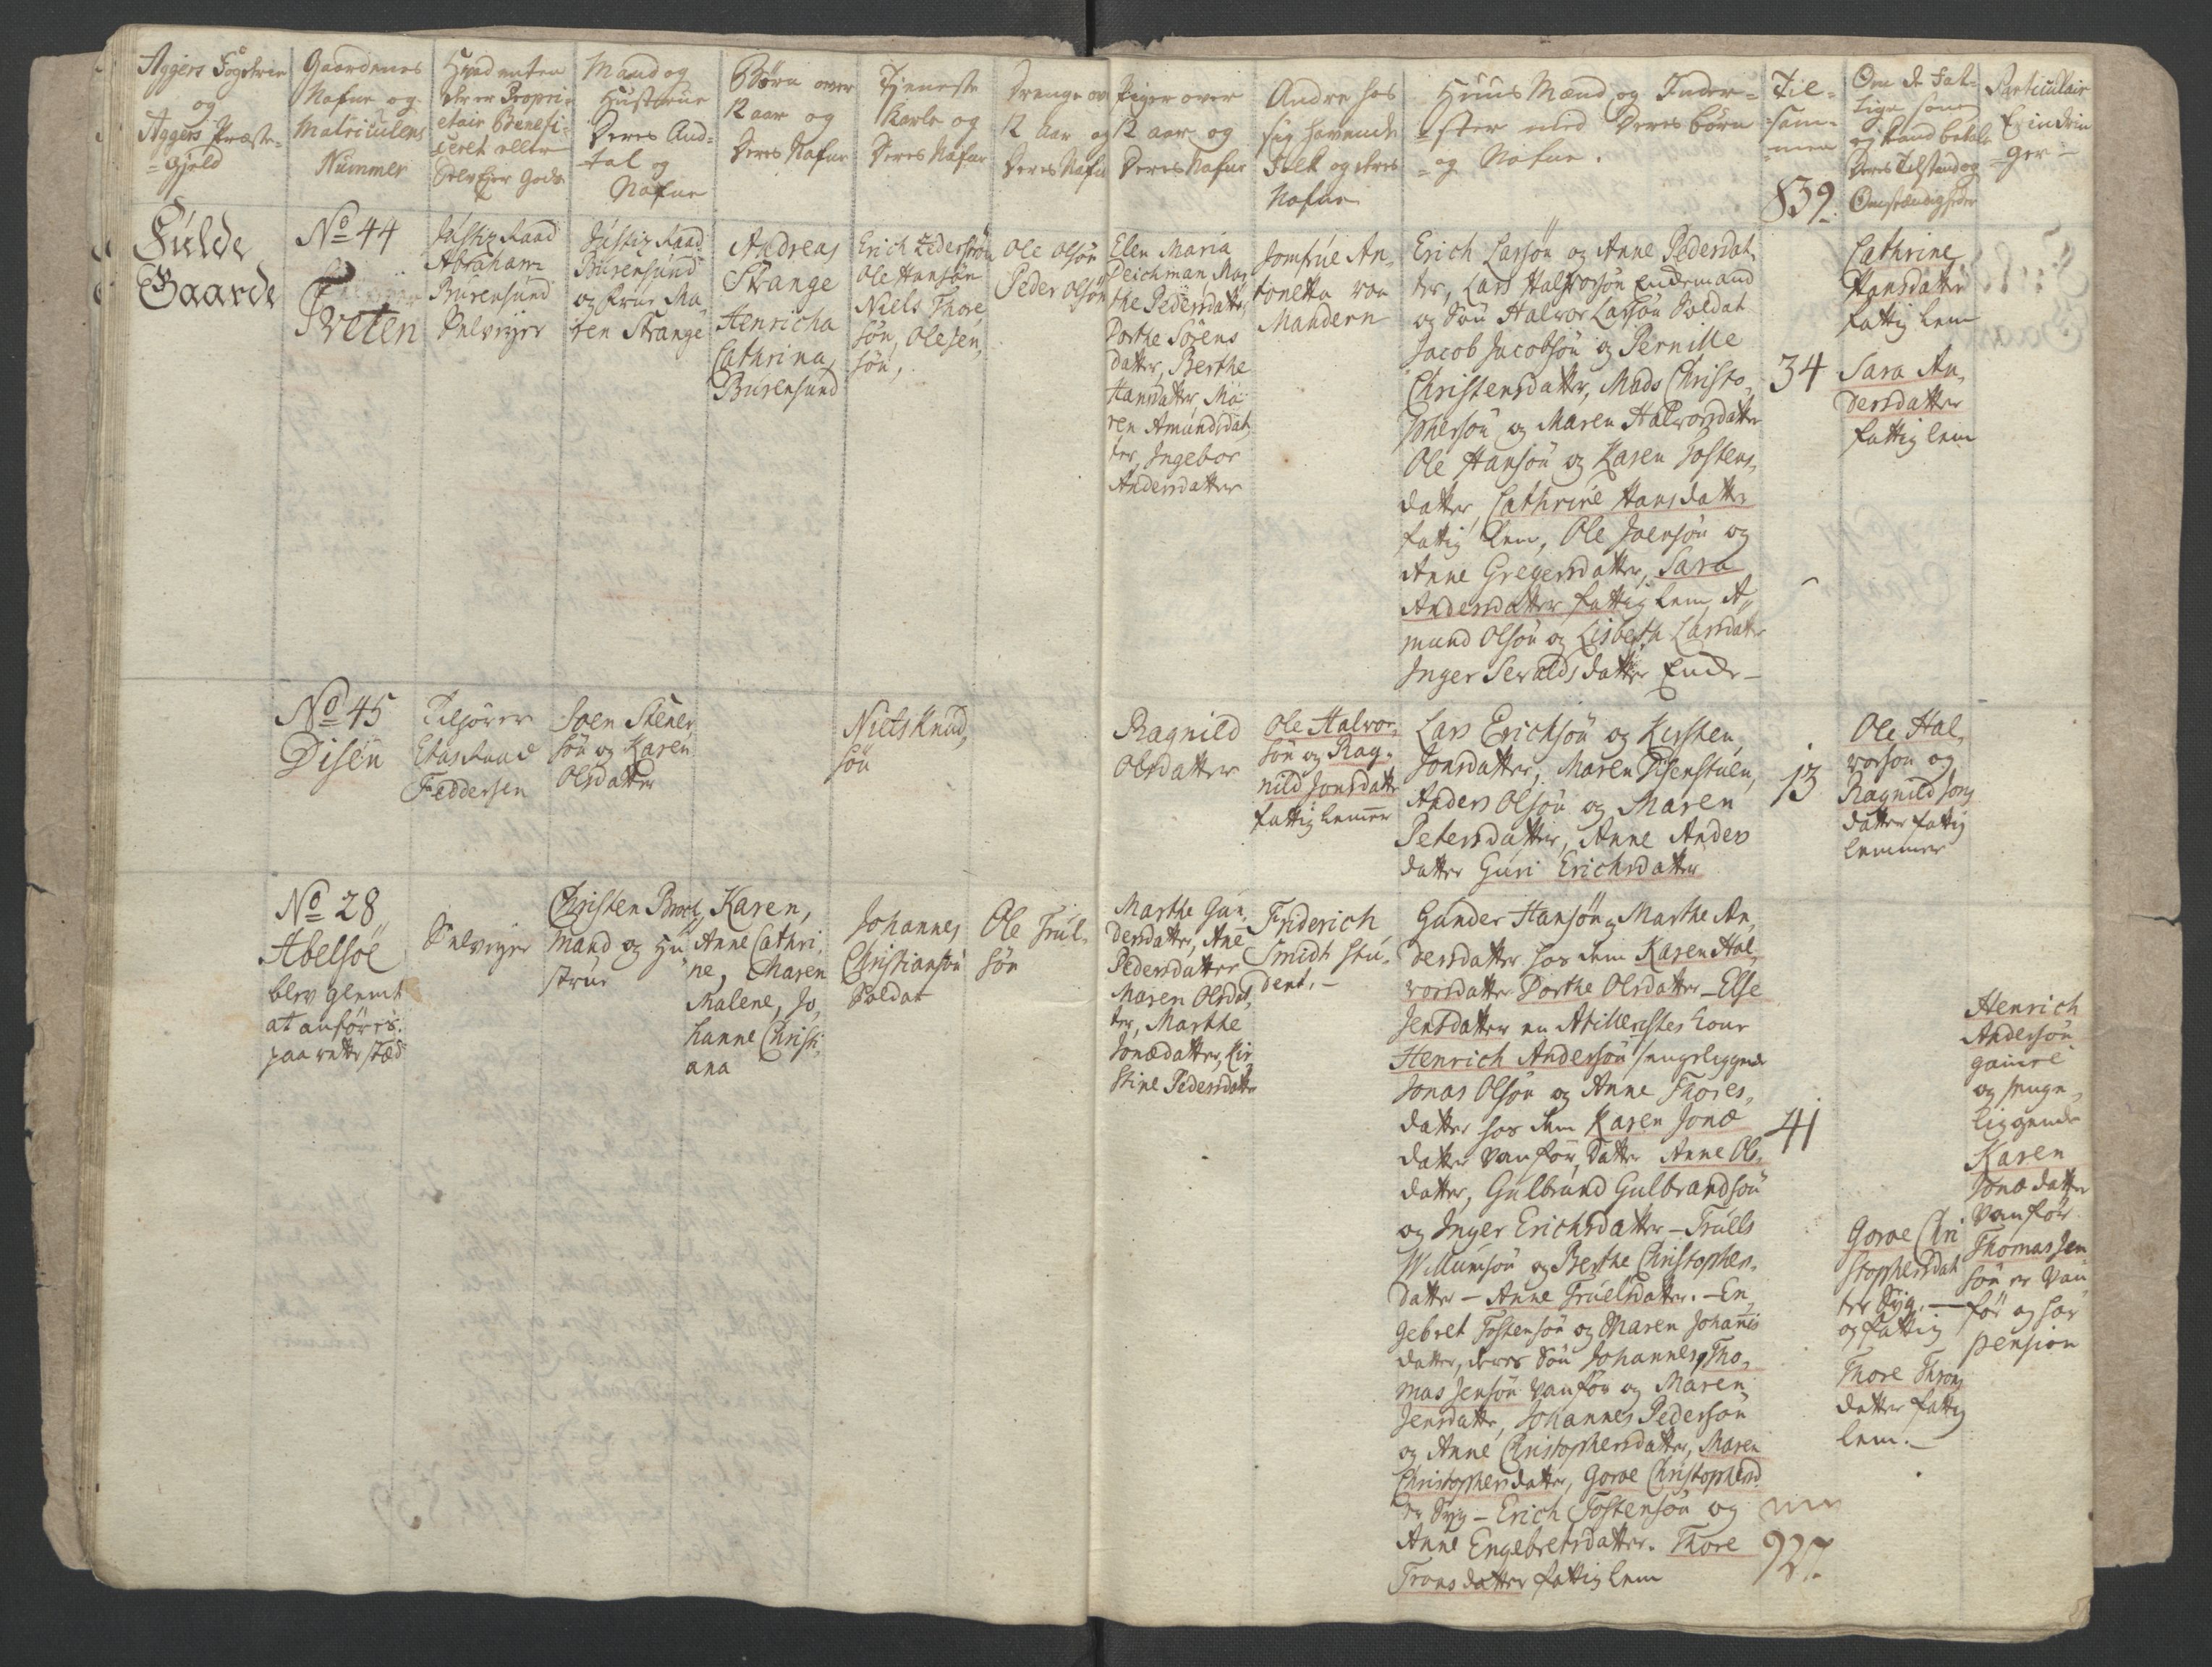 Aggers Fogderie
og
Aggers Præste-
-Gjeld
Gaardenes
Nafne og
Matriculens
Nummer
Hvad enten
der er Propri-
etair Benefi-
ceret eller
SelvEjer Gods
Mand og
Hustrue
Deres And-
tal og
Nafne
Børn over
12 aar og
Deres Nafne
Tjeneste
Karle og
Deres Nafne
Drenge ov
12 aar og
Deres Nafn
Piger over
12 aar og
Deres Nafne
Andre hos
sig havende
Folk og deres
Nafne
Huus Mænd og Inder-
-ster med Deres børn
og Nafne.
Til-
-sam-
-men
839.
Om de Fat-
tige som
ej kand betale
Deres Tilstand og
Omstændigheder
Particulair
Erindrin
-ger-
Fulde
Gaarde
No 44
Tveten
Justiz Raad
Abraham
Burensund
Selvejer
Justiz Raad
Burensund
og Frue Ma-
ren Strange
Andreas
Strange
Henricha
Cathrina
Burensund
Erich Zederstrøm
Ole Hansøn
Niels Thore
søn, Ole Jen,
søn,
Ole Olsøn
Peder Olsøn
Elen Maria
Deichman, Mar
the Pedersdatter,
Dorthe Sørens
datter, Berthe
Hansdatter Ma
ren Amundsdat
ter, Ingebor
Andersdatter
Jomfrue An-
tonetta von
Mandern
Erich Larsøn og Anne Pedersdat
ter, Lars Halvorsøn Endemand
og Søn Halvor Larsøn Soldat
Jacob Jacobsøn og Pernille
Christensdatter, Mads Christo,
phersøn og Maren Halvorsdatter
Ole Hansøn og Karen Tostens,
datter, Cathrine Hansdatter
fattig Lem, Ole Joensøn og
Anne Gregersdatter, Sara
Andersdatter fattig Lem, A,
mund Olsøn og Lisbeth Larsdatter
Inger Sevaldsdatter Enke-
34
Cathrine
Hansdatter
fattig Lem
Sara An,
dersdatter
fattig lem
No 45
Disen
Tilhører
Etats Raad
Feddersen
Joen Stener,
søn og Karen
Olsdatter
Niels Knud,
søn
Ragnild
Olsdatter
Ole Halvor,
søn og Rag-
nild Jonsdatter
fattig Lemmer
Lars Erichsøn og Kirsten
Jonsdatter, Maren Disenstuen,
Anders Olsøn og Maren
Petersdatter, Anne Anders
datter Guri Erichsdatter
13
Ole Hal,
vorsøn og
Ragnild Jons
datter fattig
lemmer
No 28
Abelsøe
blev glemt
at anføres
paa rette stæd
Selvejer
Christen Brock
mand og Hu
strue
Karen,
Anne Cathri,
ne, Maren
Malene, Jo,
hanne Christi,
ana
Johannes
Christiansøn
Soldat
Ole Trul-
søn
Marthe Gun
dersdatter, Ane
Pedersdatter
Maren Olsdat,
ter, Marthe
Jonædatter, Kir
stine Pedersdatter
Friderich
Smidt Stu-
dent.-
Gunder Hansøn og Marthe An,
dersdatter hos dem Karen Hal,
vorsdatter Dorthe Olsdatter - Else
Jensdatter en Atilleristes Kone
Henrich Andersøn sengeliggende
Jonas Olsøn og Anne Thores,
datter hos dem Karen Jonæ
datter Vanfør, datter Anne Ols
datter, Gulbrand Gulbrandsøn
og Inger Erichsdatter - Trulls
Willumsøn og Berthe Christophers,
datter - Anne Truelsdatter. - En,
gebret Tostensøn og Maren Johannis
datter, deres Søn Johannes, Tho,
mas Jensøn vanfør og Maren
Jensdatter, Johannes Pedersøn
og Anne Christophersdatter, Maren
Christophersdatter, Gorve Christophersd
er Syg - Erich Tostensøn og
Anne Engebretsdatter. Thore
Tronsdatter fattig Lem
41
927.
Gorve Chri
stophersdat
ter Syg.-
og fattig
Thore Throns
datter fattig
lem.-
Henrich
Andersøn
gamel
og senge,
liggende
Karen
Jonædatter
vanfør
Thomas Jen
søn er Van
før og har
pension